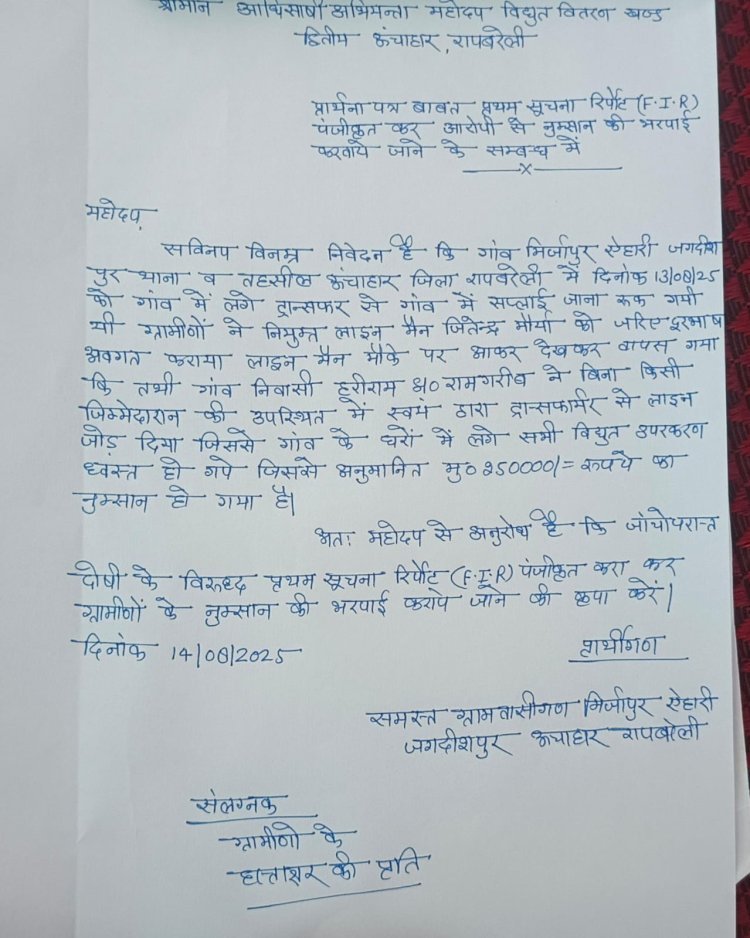 श्रीमान अधिशाषी अभियन्ता महोदय विद्युत वितरण खण्ड
द्वितीय ऊंचाहार, रायबरेली
प्रार्थना पत्र बाबत प्रथम सूचना रिर्पोट (F.I.R)
पंजीकृत कर आरोपी से नुक्सान की भरपाई
करवाये जाने के सम्बन्ध में
x
महोदय,
सविनय विनम्र निवेदन है कि गांव मिर्जापुर ऐहारी जगदीश
पुर थाना व तहसील ऊंचाहार जिला रायबरेली में दिनांक 13/08/25
को गांव में लगे ट्रान्सफर से गांव में सप्लाई जाना रूक गयी
थी ग्रामीणों ने नियुक्त लाइन मैन जितेन्द्र मौर्या को जरिए दूरभाष
अवगत कराया लाइन मैन मौके पर आकर देखकर वापस गया
कि तभी गांव निवासी हरीराम S/० रामगरीब ने बिना किसी
जिम्मेदारान की उपस्थित में स्वयं द्वारा ट्रान्सफार्मर से लाइन
जोड़ दिया जिससे गांव के घरों में लगे सभी विद्युत उपरकरण
ध्वस्त हो गये जिससे अनुमानित मु० 250000/= रूपये का
नुक्सान हो गया है।
अतः महोदय से अनुरोध है कि जांचोपरान्त
दोषी के विरुध्द प्रथम सूचना रिर्पोट (F.I.R) पंजीकृत करा कर
ग्रामीणों के नुक्सान की भरपाई कराये जाने की कृपा करें।
दिनांक 14/08/2025
प्रार्थीगण
समस्त ग्रामवासीगण मिर्जापुर ऐहारी
जगदीशपुर ऊंचाहार रायबरेली
संलग्नक
ग्रामीणो के
हस्ताक्षर की प्रति